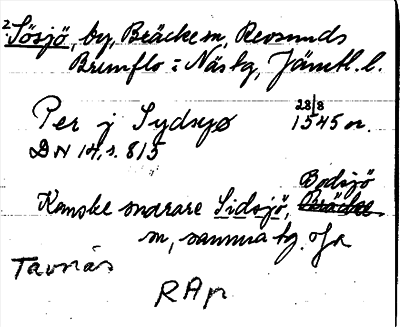 2. Sösjö, by, Bräcke sn, Revsunds
Brunflo = Näs tg, Jämtl. l.
Per j Sydsyø 28/8 1545 or.
DN 14, s. 815
Kanske snarare Sidsjö, Bodsjö Bräcke
sn, samma tg.
Tavnäs
RAp